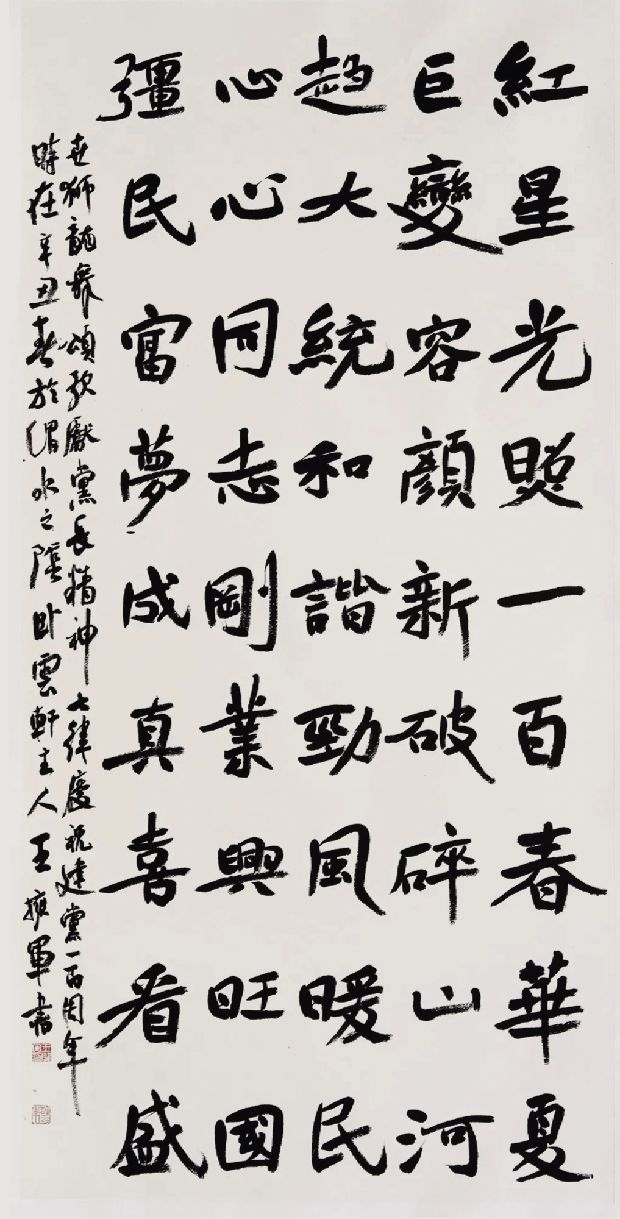 紅星光照一百春華夏
巨變容顏新破碎山河
趨大統和諧勁風暖民
心心同志剛業興旺國
彊民富夢成真喜看盛
世獅龍舞頌歌獻黨長精神 七律慶祝建黨一百周年
時在辛丑春於渭水之陰卧雲軒主人王擁軍書